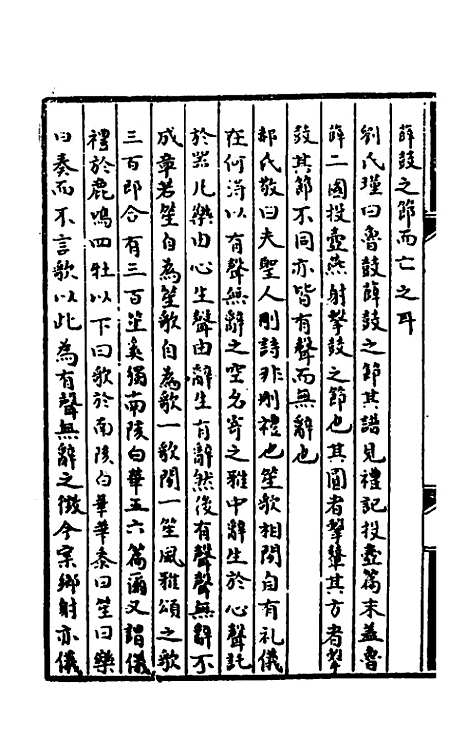 薛鼓之節而亡之耳
劉氏瑾曰魯鼓薛鼓之節其譜見禮記投壺篇末蓋魯
薛二國投壺燕射擊鼓之節也其圓者擊鼙其方者擊
鼓其節不同亦皆有聲而無辭也
郝氏敬曰夫聖人刪詩非刪禮也笙歌相間自有礼儀
在何淂以有聲無辭之空名寄之雅中辭生於心聲託
於器凡樂由心生聲由辭生有辭然後有聲聲無辭不
成章若笙自為笙歌自為歌一歌間一笙風雅頌之歌
三百即合有三百笙奚獨南陔白華五六篇爾又謂儀
禮於鹿鳴四牡以下曰歌於南陔白華華黍曰笙曰樂
曰奏而不言歌以此為有聲無辭之徵今案鄉射亦儀